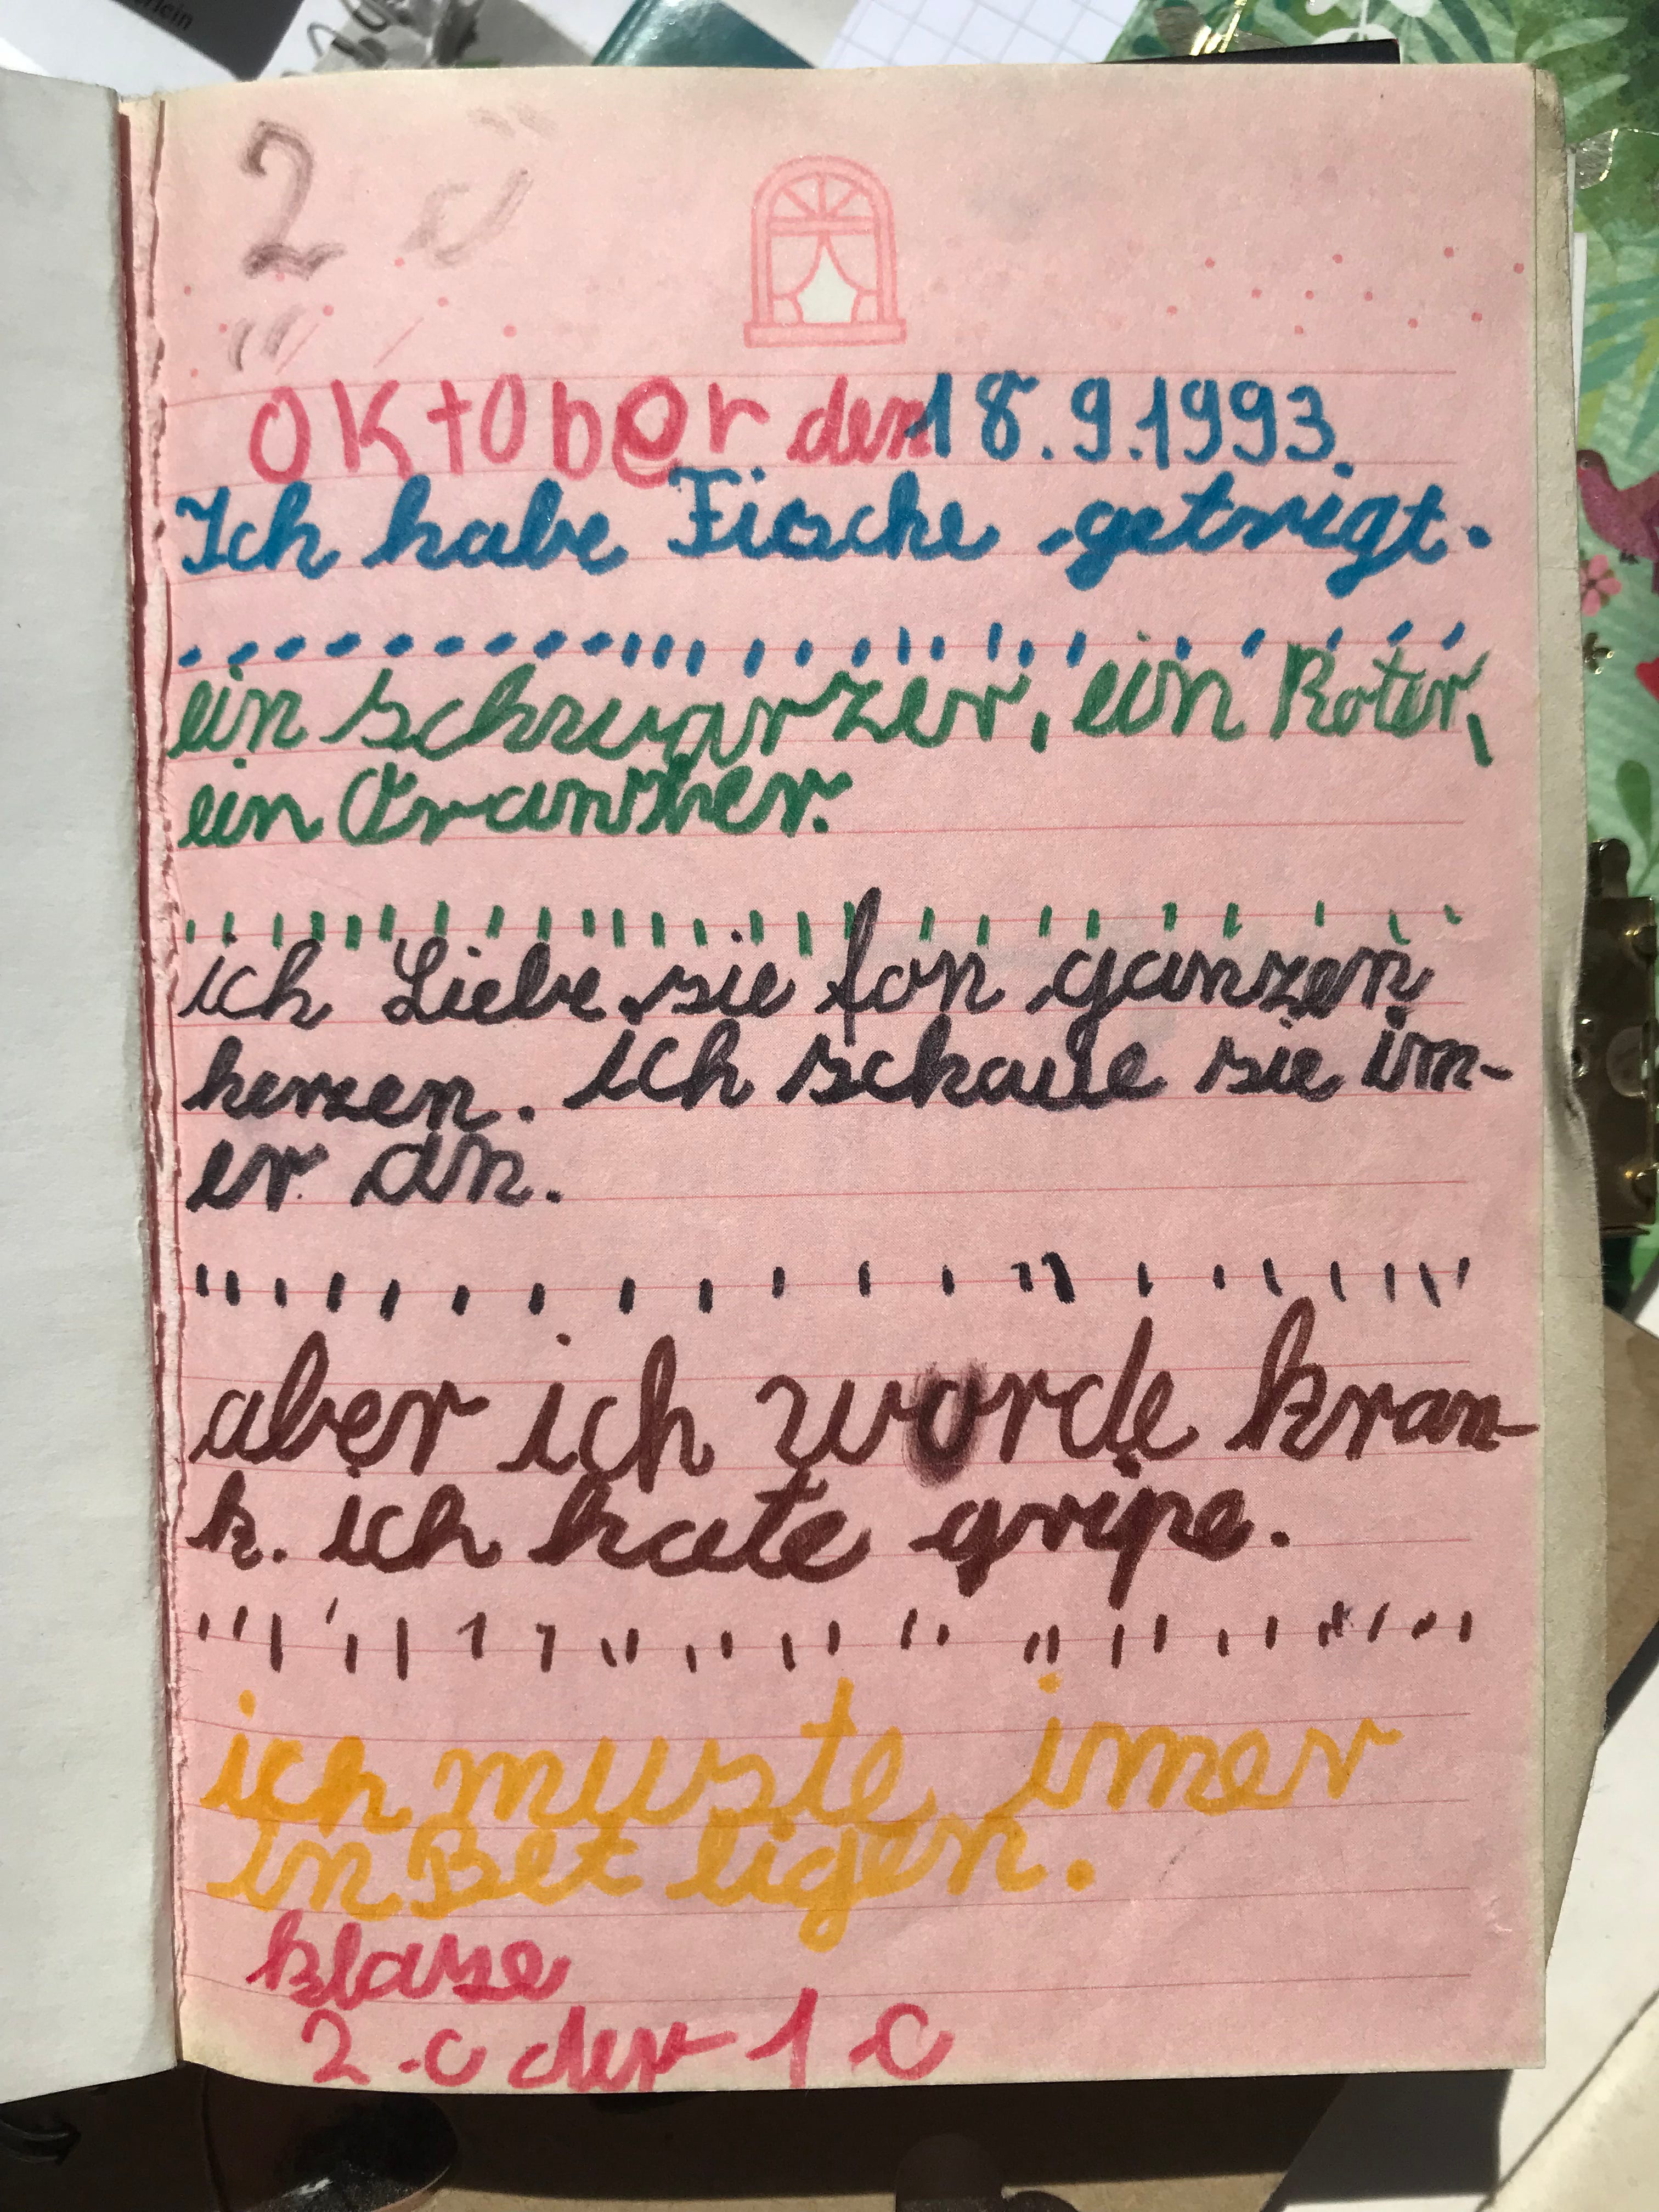 erlein
2
Oktober den 18.9.1993.
Ich habe Fische getrigt.
ein schwarzer, ein Roter,
ein Oranscher.
ich Liebe sie fon ganzen
herzen. ich schaue sie im-
er an.
aber ich wurde kran-
k. ich hate gripe.
ich muste imer
in Bet ligen.
klase
2 c der 1 c